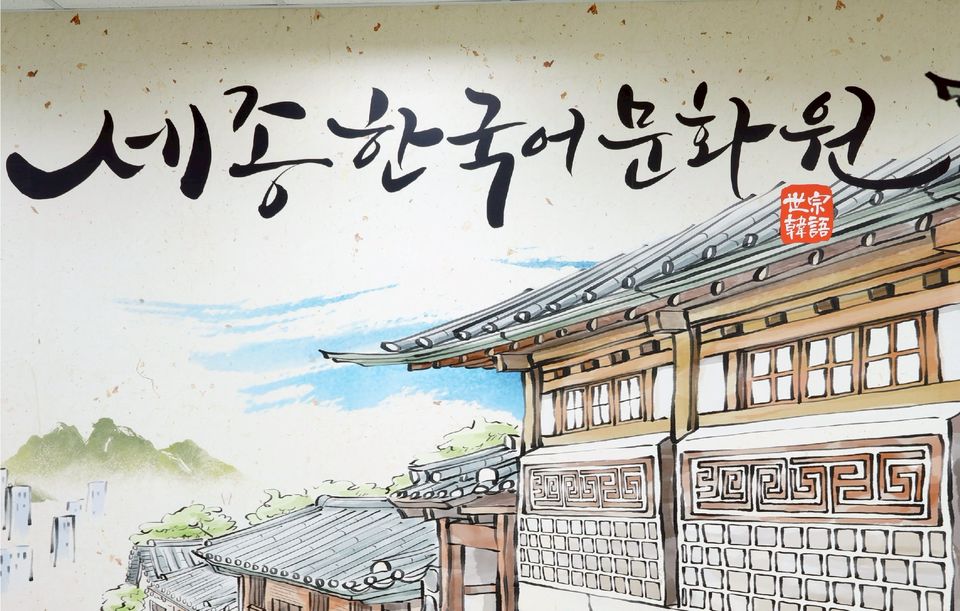 세종한국어문화원
世宗
韓語